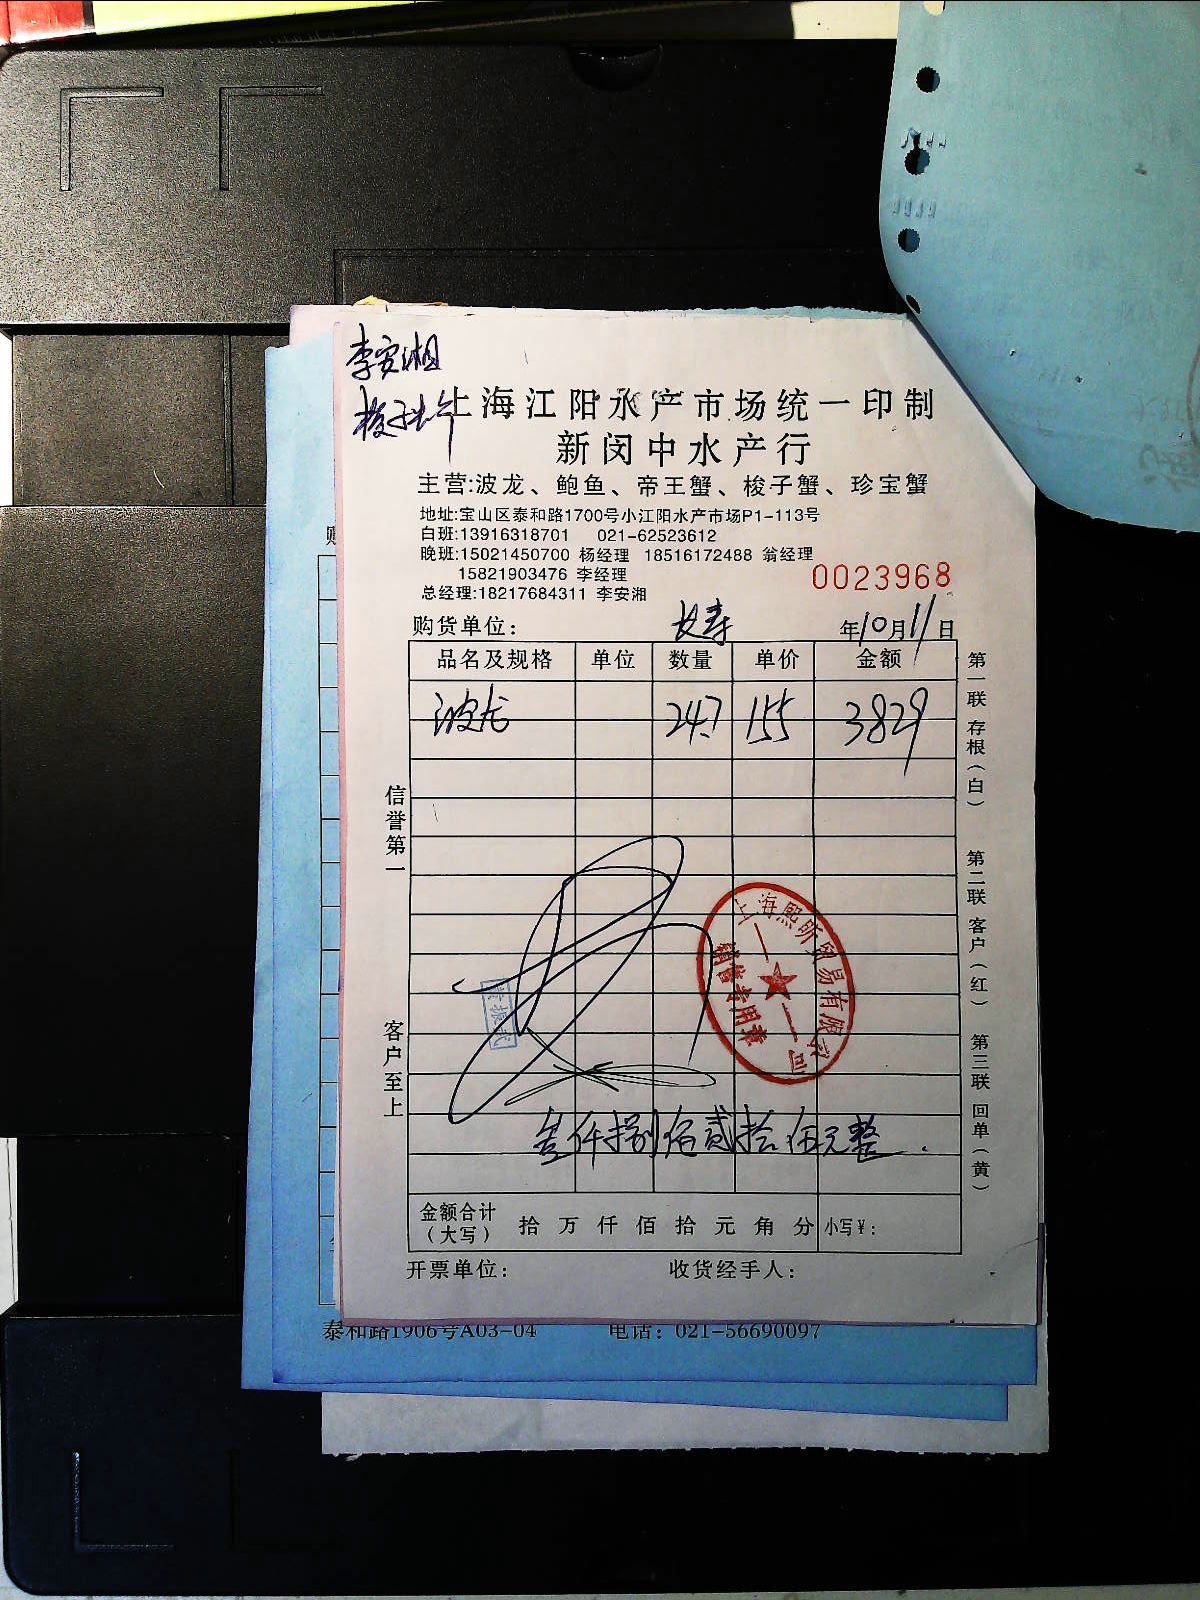 李安湘
梭子蟹
上海江阳水产市场统一印制
新闵中水产行
主营:波龙、鲍鱼、帝王蟹、梭子蟹、珍宝蟹
地址:宝山区泰和路1700号小江阳水产市场P1-113号
白班:13916318701 021-62523612
晚班:15021450700 杨经理 18516172488 翁经理
15821903476 李经理
总经理:18217684311 李安湘
0023968
购货单位: 长寿 年10月11日
品名及规格 单位 数量 单价 金额
波龙 24.7 155 3829
信誉第一
客户至上
第一联 存根(白)
第二联 客户(红)
第三联 回单(黄)
上海熙昕贸易有限公司
销售专用章
叁仟捌佰贰拾伍元整.
金额合计(大写) 拾 万 仟 佰 拾 元 角 分 小写¥:
开票单位: 收货经手人:
泰和路1906号A03-04 电话: 021-56690097